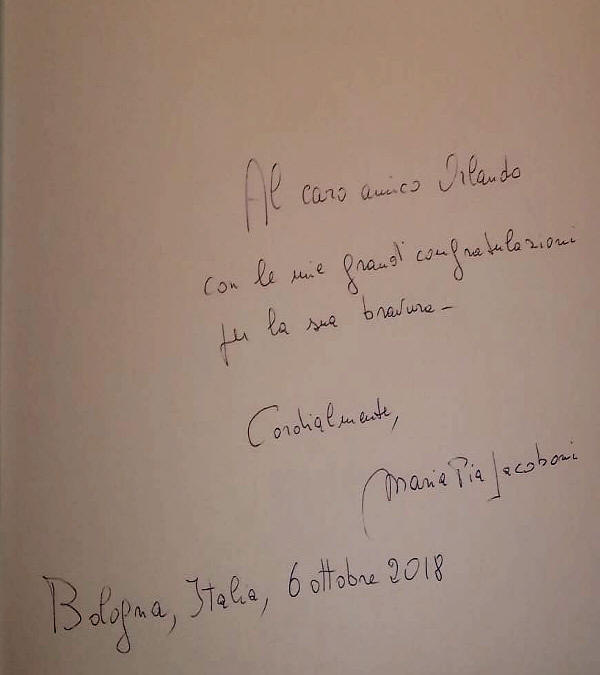 Al caro amico Orlando
con le mie grandi congratulazioni
per la sua bravura –
Cordialmente,
Maria Pia Jacoboni
Bologna, Italia, 6 ottobre 2018